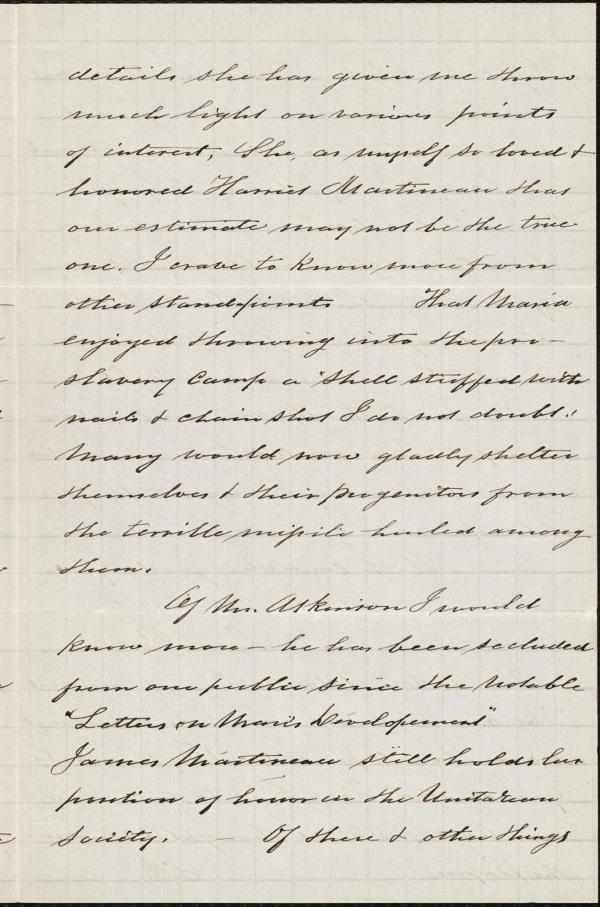 details she has given me throw
much light on various points
of interest, She, as myself so loved &
honored Harriet Martineau that
our estimate may not be the true
one. I crave to know more from
other stand-points That Maria
enjoyed throwing into the pro-
slavery camp a "shell stuffed with
nails & chain shot I do not doubt!
Many would now gladly shelter
themselves & their progenitors from
the terrible missile hurled among
them.
Of Mr. Atkinson I would
know more - he has been secluded
from our public since the notable
"Letters on Man's Development"
James Martineau still holds his
position of honor in the Unitarean
Society. - Of these & other things